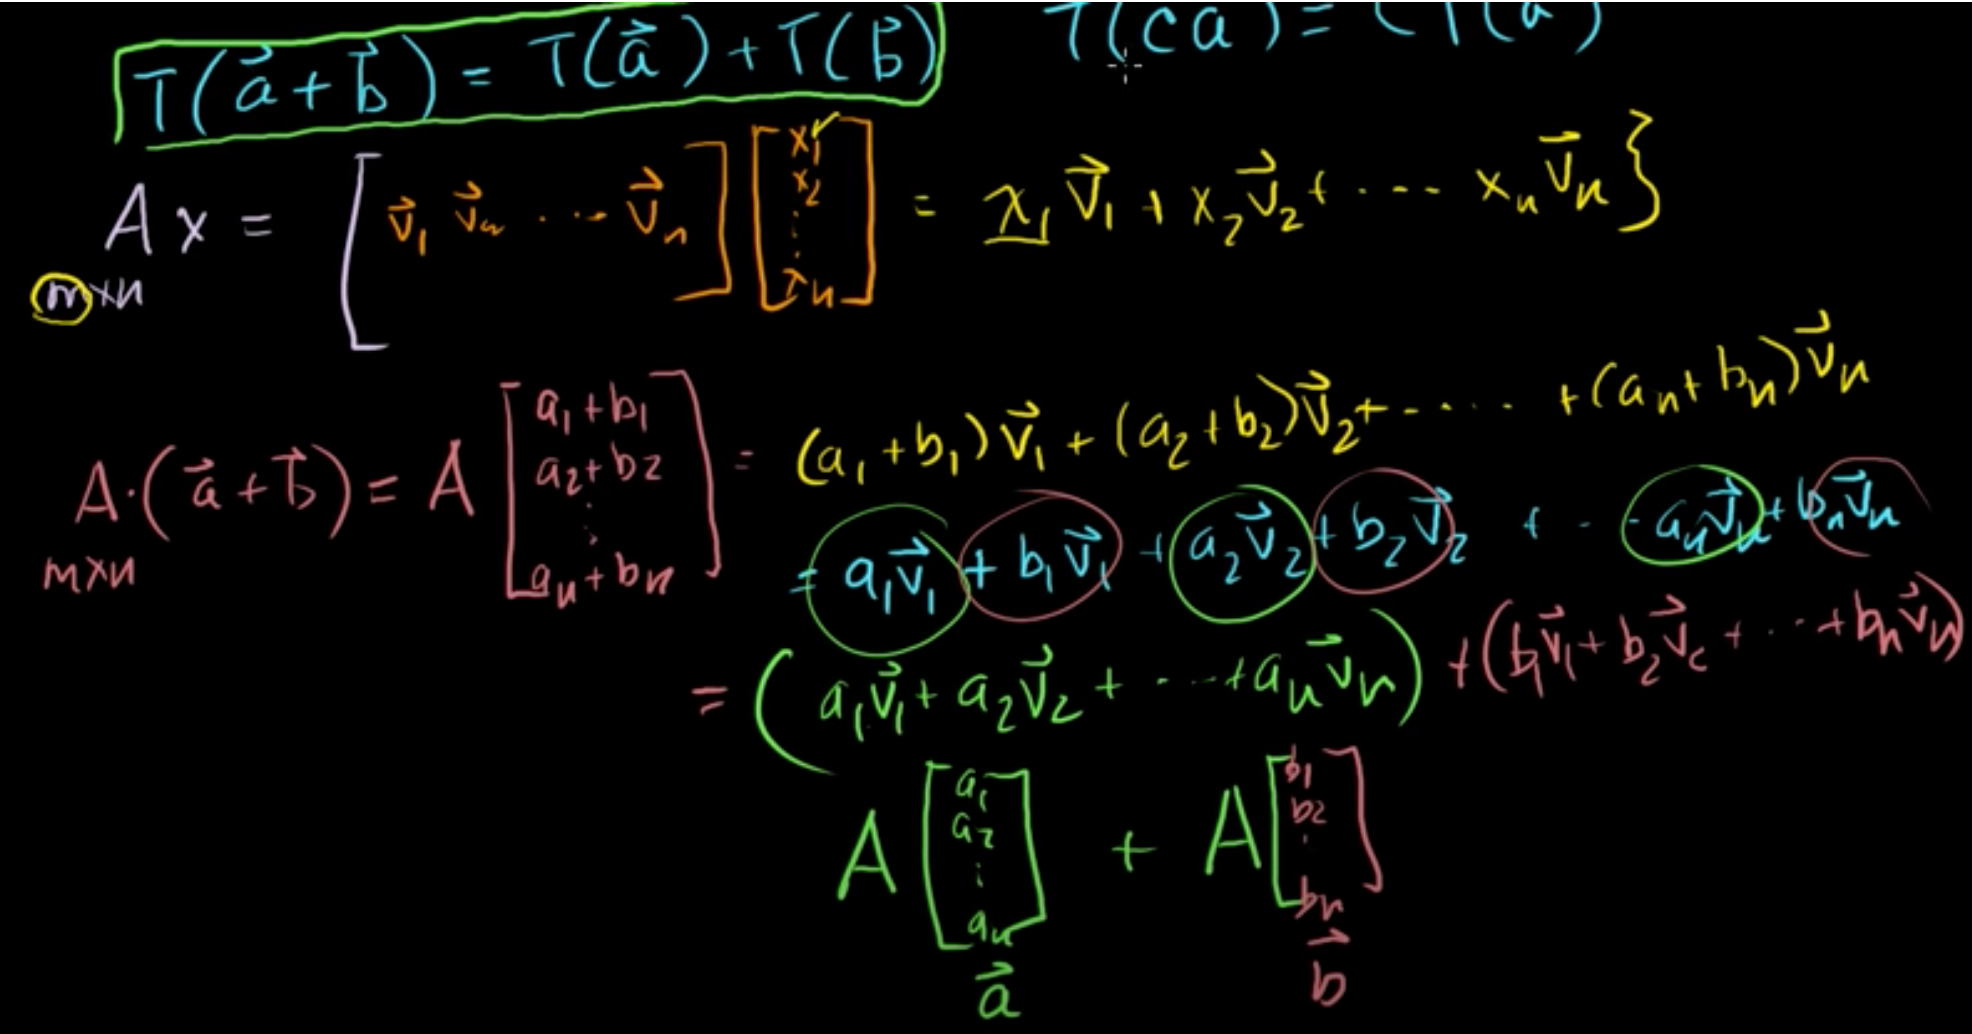 T(a⃗+b⃗) = T(a⃗) + T(b⃗) T(ca) = CT(a)
Ax = [v⃗₁ v⃗ₙ ... v⃗ₙ] [x₁ x₂ ⋮ xₙ] = x₁v⃗₁ + x₂v⃗₂ + ... xₙv⃗ₙ }
m×n
A·(a⃗+b⃗) = A [a₁+b₁ a₂+b₂ ⋮ aₙ+bₙ] = (a₁+b₁)v⃗₁ + (a₂+b₂)v⃗₂ + ..... +(aₙ+bₙ)v⃗ₙ
m×n
= a₁v⃗₁ + b₁v⃗₁ + a₂v⃗₂ + b₂v⃗₂ + - - aₙv⃗ₙ + bₙv⃗ₙ
= (a₁v⃗₁ + a₂v⃗₂ + ... + aₙv⃗ₙ) + (b₁v⃗₁ + b₂v⃗₂ + ... + bₙv⃗ₙ)
A [a₁ a₂ ⋮ aₙ] + A [b₁ b₂ ⋮ bₙ]
a⃗ b⃗